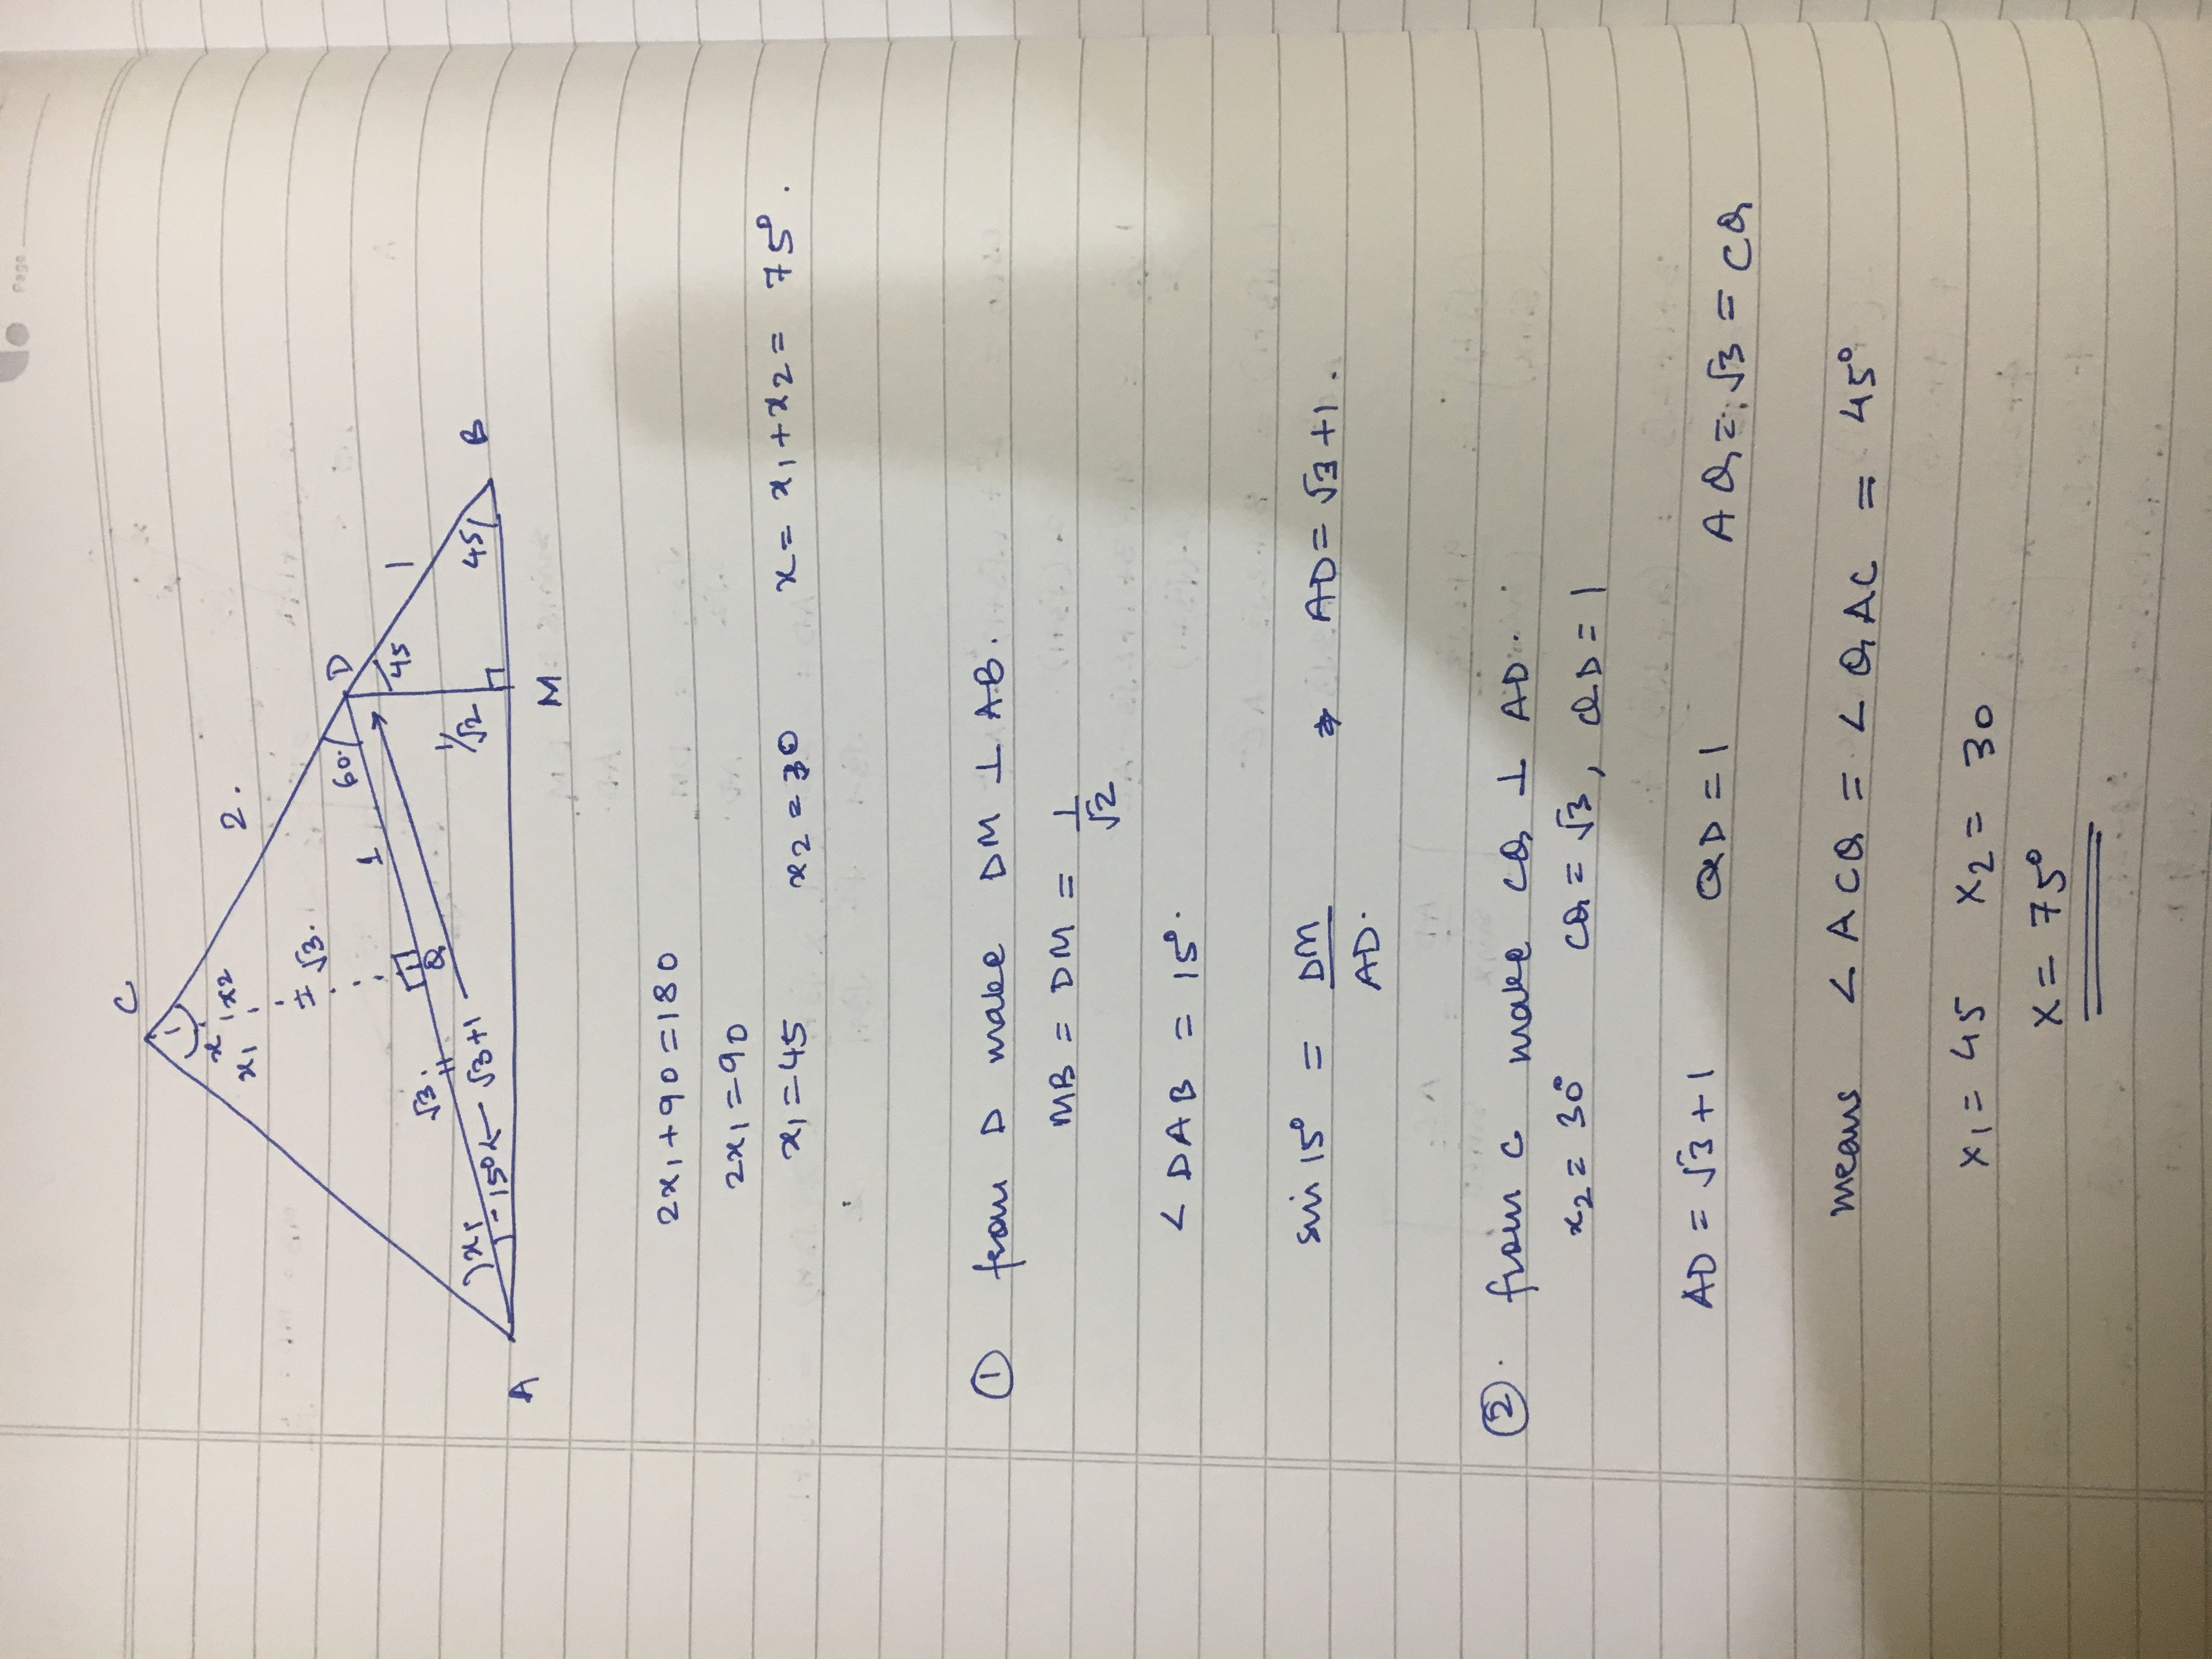 Page
C
x
x1 x2
2.
= √3.
D
60°
45
1
1
45
B
√3.
Q
1/√2
x1
15°
√3+1
A
M
2x1 + 90 = 180
2x1 = 90
x1 = 45 x2 = 30 x = x1 + x2 = 75°.
① from D make DM ⊥ AB.
MB = DM = 1/√2
∠ DAB = 15°.
sin 15° = DM/AD. ⇒ AD = √3 + 1.
②. from C make CQ ⊥ AD.
x2 = 30° CQ = √3, QD = 1
AD = √3 + 1 QD = 1 AQ = √3 = CQ
means ∠ ACQ = ∠ QAC = 45°
x1 = 45 x2 = 30
x = 75°